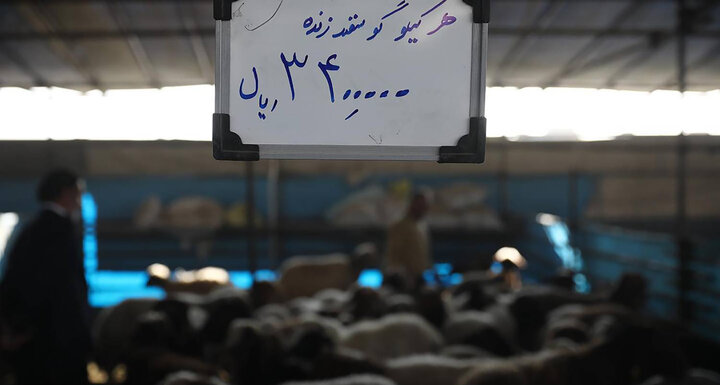 هر کیلو گوسفند زنده
۳۴۰۰۰۰۰ ریال